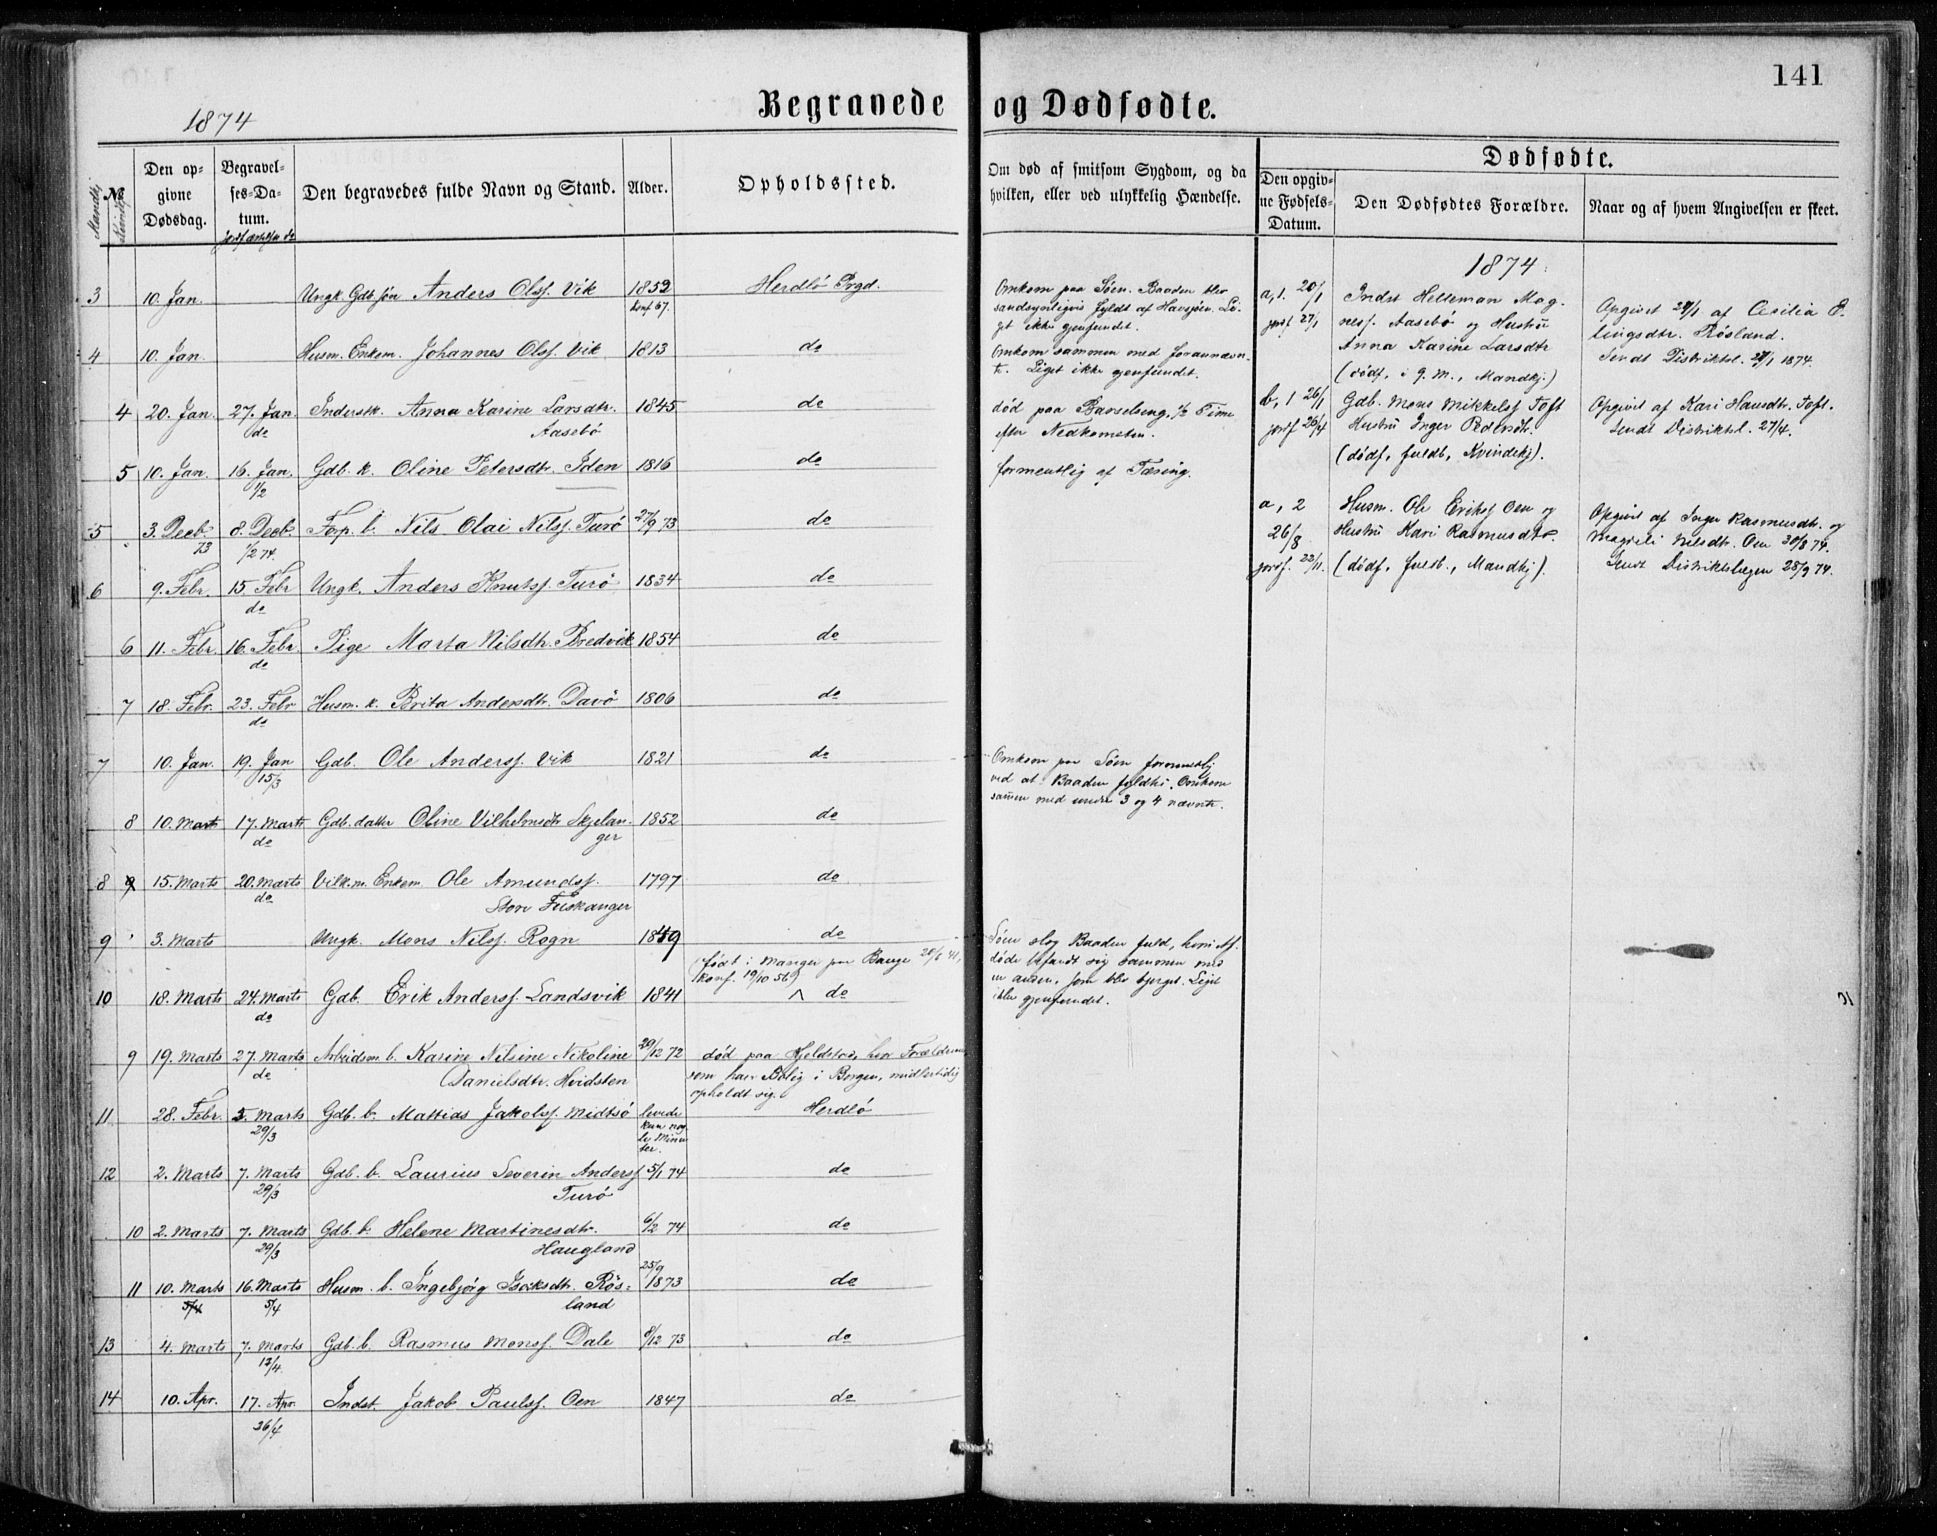 141
Begravede og Dødfødte.
1874
Mandk. No. Kvindk.
Den opgivne Dødsdag.
Begravelses-Datum.
Jordfæstelse do
Den begravedes fulde Navn og Stand.
Alder.
Opholdssted.
Om død af smitsom Sygdom, og da hvilken, eller ved ulykkelig Hændelse.
Dødfødte.
Den opgivne Fødsels-Datum.
Den Dødfødtes Forældre.
Naar og af hvem Angivelsen er skeet.
3 10. Jan. Ungk. Gdb. søn Anders Olsf. Vik 1852 Herdlö Prgd.
konf 67.
Omkom paa Söen. Baaden blev
sandsynligvis fyldt af Havsjöen. Li-
get ikke gjenfundet.
4 10. Jan. Husm. Enkem. Johannes Olsf. Vik 1813 do
Omkom sammen med forannævn-
te. Liget ikke gjenfundet.
4 20. Jan. 27. Jan. Inderstk. Anna Karine Larsdtr. 1845 do
do Aasebö
död paa Barselseng, ½ Time
efter Nedkomsten.
5 10. Jan. 16. Jan. Gdb. k. Oline Petersdtr. Iden 1816 do
1/2
formentlig af Tæring.
5 3. Decb. 8. Decb. Forp. b. Nils Olai Nilsf. Turö 27/9 73 do
73 1/2 74.
6 9. Febr. 15. Febr Ungk. Anders Knutsf. Turö 1834 do
do
6 11. Febr. 16. Febr. Pige Marta Nilsdtr. Bredvik 1854 do
do
7 18. Febr. 23. Febr Husm. k. Brita Andersdtr. Davö 1806 do
do
7 10. Jan. 19. Jan Gdb. Ole Andersf. Vik 1821 do
15/3
Omkom paa Söen formentlig
ved at Baaden fyldtes. Omkom
sammen med under 3 og 4 nævnte.
8 10. Marts 17. Marts Gdb. datter Oline Vilhelmsdtr Skjelan- 1852 do
do ger
8 9 15. Marts 20. Marts Vilk.m. Enkem Ole Amundsf. 1797 do
do Store Fuskanger
9 3. Marts Ungk. Mons Nilsf. Rogn 1849 do
Söen slog Baaden fuld, hvori Af-
döde befandt sig sammen med
en anden, som blev bjerget. Liget
ikke gjenfundet.
(født i Manger paa Bauge 28/8 41,
konf. 19/10 56)
10 18. Marts 24. Marts Gdb. Erik Andersf. Landsvik 1841 do
do
9 19. Marts 27. Marts Arbeidsm. b. Karine Nilsine Nikoline 29/12 72 död paa Hjeldstö, hvor Forældrene
do Danielsdtr. Hvidsten som har Bolig i Bergen, midlertidig
opholdt sig.
11 28. Febr. 5. Marts Gdb. b. Mattias Jakobsf. Midtsö levede Herdlö
29/3 kun nog-
le Minu-
ter.
12 2. Marts 7. Marts Gdb. b. Laurius Severin Andersf 5/1 74 do
29/3 Turö
10 2. Marts 7. Marts Gdb. b. Helene Martinesdtr. 6/2 74 do
29/3 Haugland
11 10. Marts 16. Marts Husm. b. Ingebjörg Isaksdtr. Rös- 25/9 1873 do
5/4 5/4 land
13 4. Marts 7. Marts Gdb. b. Rasmus Monsf. Dale 8/12 73 do
12/4.
14 10. Apr. 17. Apr. Indst. Jakob Paulsf. Oen 1847 do
26/4
1874.
a, 1. 20/1
jordf 27/1
Indst Helleman Mag-
nesf. Aasebö og Hustru
Anna Karine Larsdtr
(dödf, i 9. M., Mandkj.)
Opgivet 27/1 af Cecilia E-
lingsdtr. Rösland.
Sendt Distriktsl. 27/1 1874.
b, 1 26/1
jordf 26/4
Gdb. Mons Mikkelsf Toft
Hustru Inger Pedersdtr.
(dödf, fuldb, Kvindekj).
Opgivet af Kari Hansdtr. Toft.
Sendt Distriktsl. 27/4.
a, 2
26/8
jordf. 22/11.
Husm. Ole Eriksf Oen og
Hustru Kari Rasmusdtr.
(dödf, fuldb., Mandkj).
Opgivet af Inger Rasmusdtr. og
Magreli Nilsdtr. Oen 30/8 74.
Sendt Distriktslægen 28/9 74.